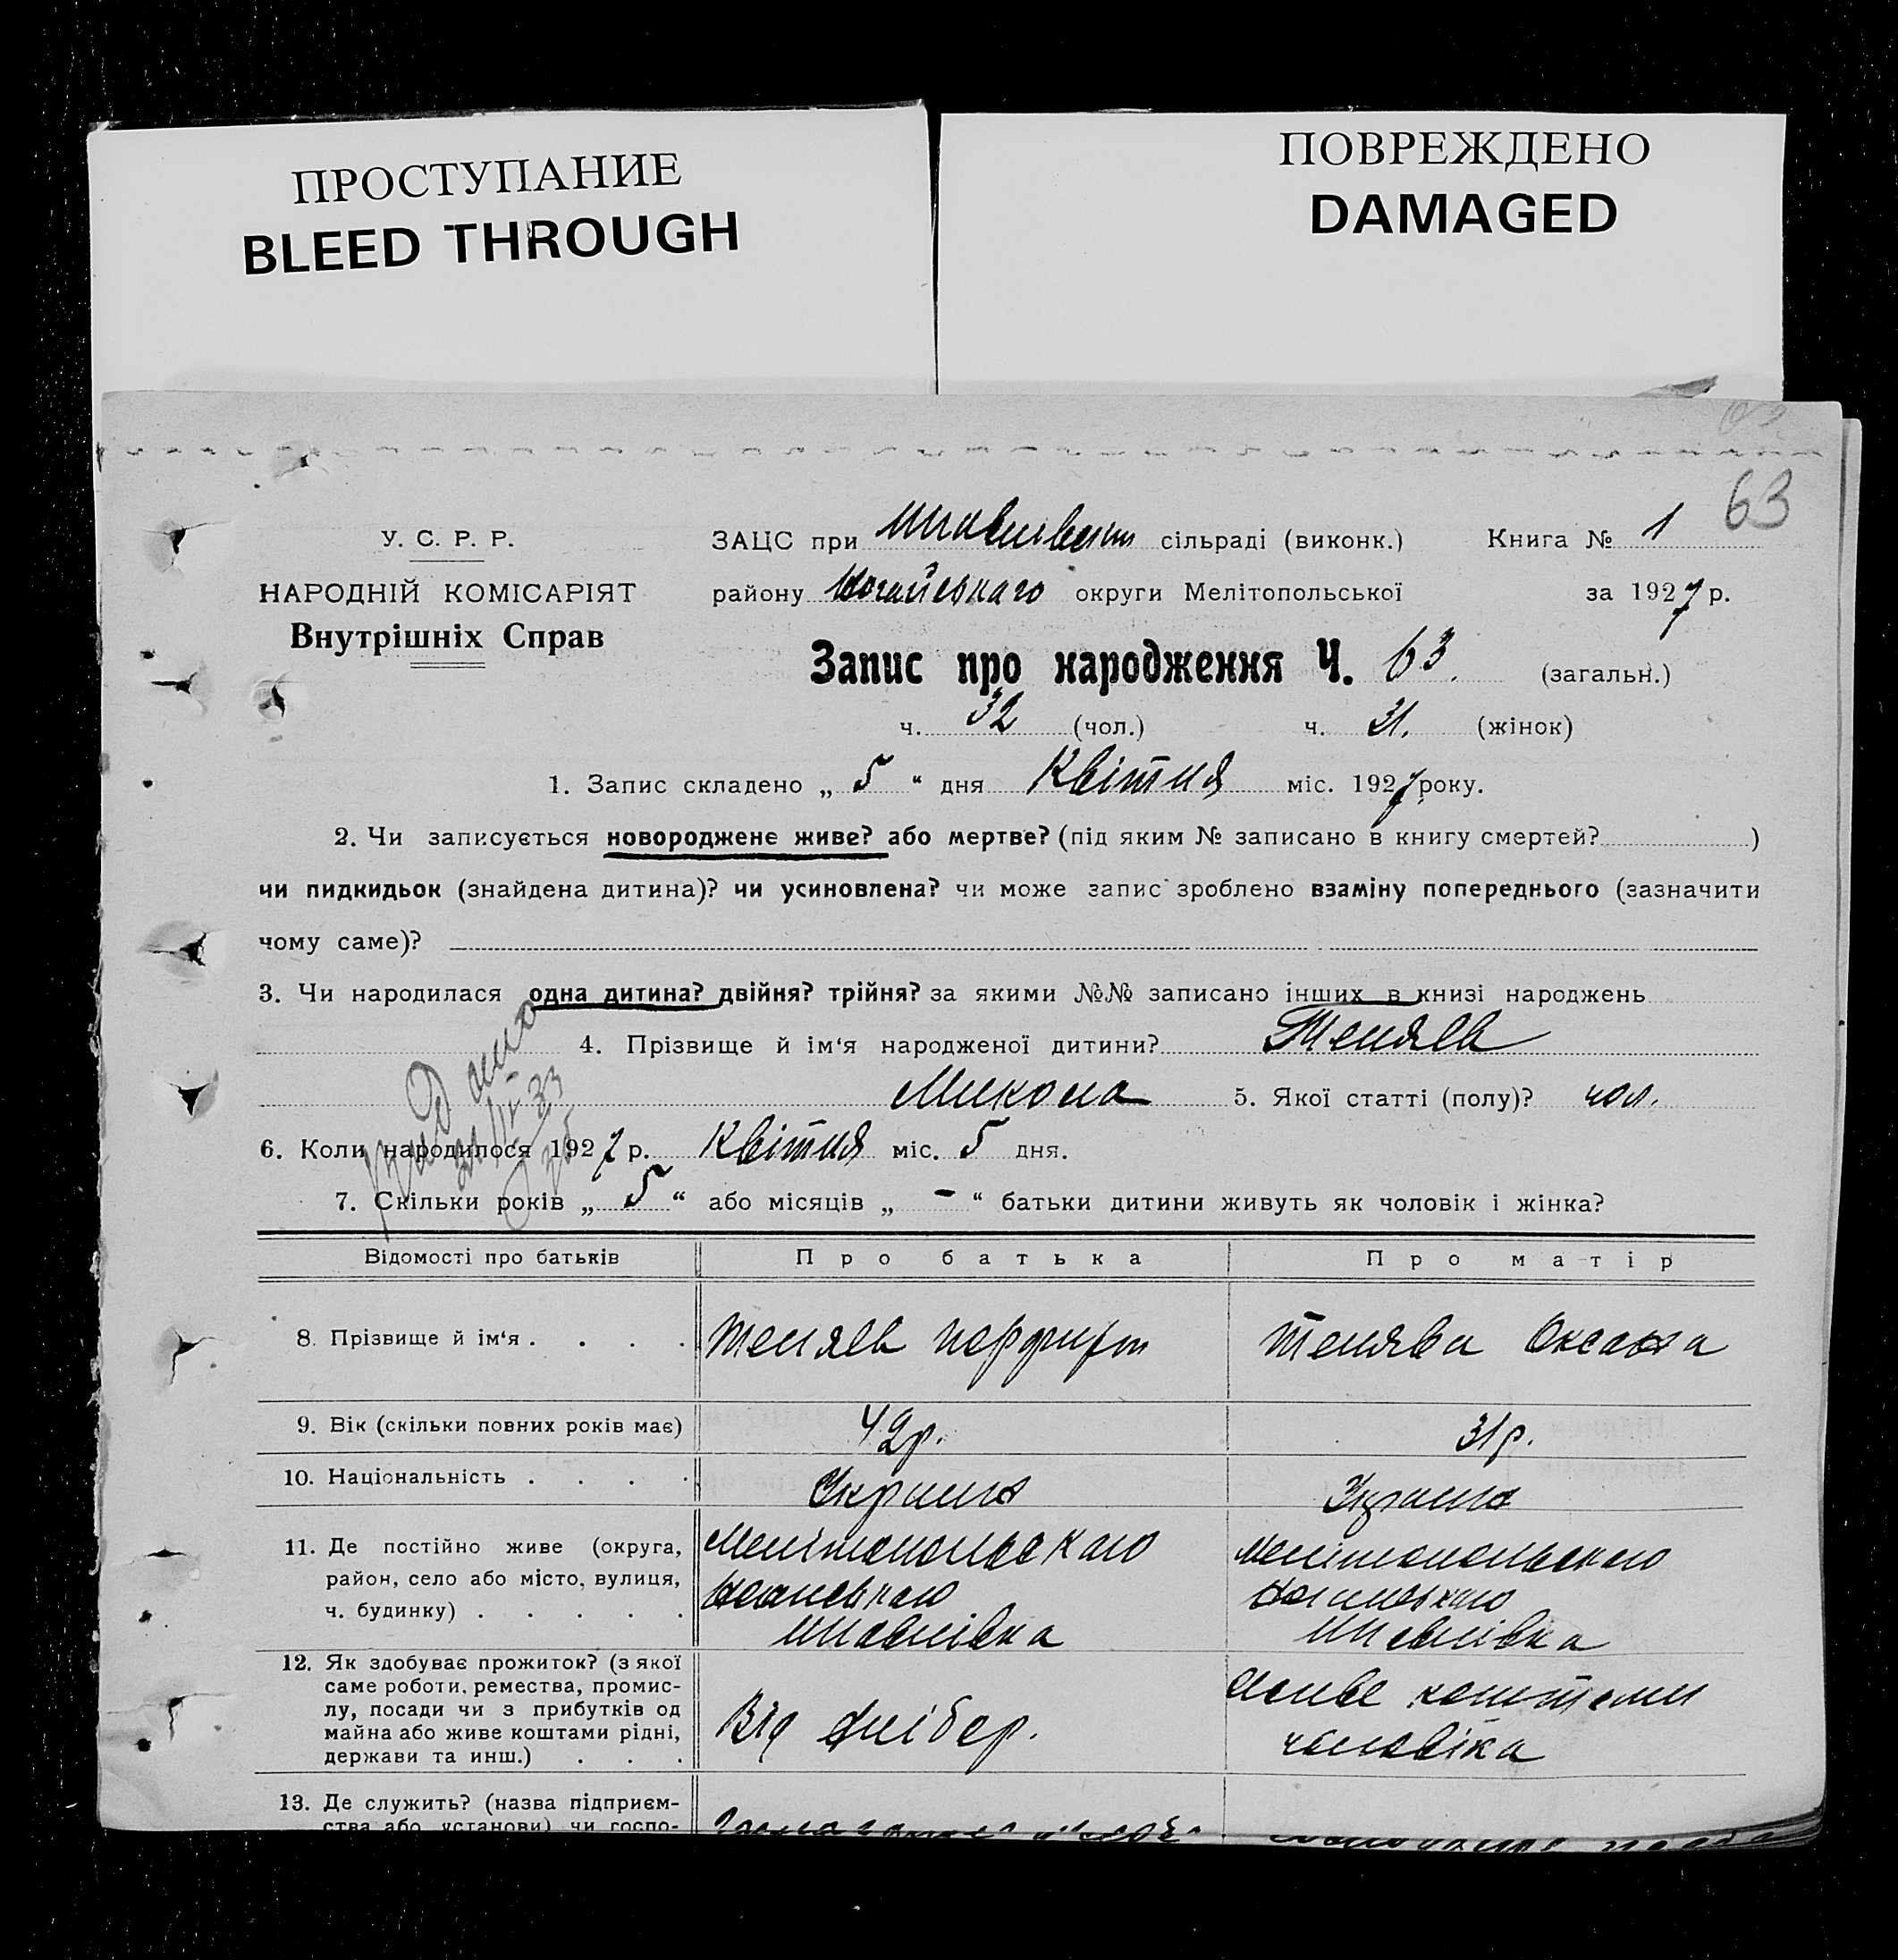 ПРОСТУПАНИЕ
BLEED THROUGH
ПОВРЕЖДЕНО
DAMAGED
63
У. С. Р. Р.
НАРОДНІЙ КОМІСАРІЯТ
Внутрішніх Справ
ЗАЦС при сільраді (виконк.) Книга № 1
району Ногайського округи Мелітопольської за 1927 р.
Запис про народження Ч. 63. (загальн.)
ч. 32 (чол.) ч. 31. (жінок)
1. Запис складено „ 5 “ дня Квітня міс. 1927 року.
2. Чи записується новороджене живе? або мертве? (під яким № записано в книгу смертей? )
чи пидкидьок (знайдена дитина)? чи усиновлена? чи може запис зроблено взаміну попереднього (зазначити
чому саме)?
3. Чи народилася одна дитина? двійня? трійня? за якими №№ записано інших в книзі народжень
4. Прізвище й ім‘я народженої дитини? Теняев
Микола 5. Якої статті (полу)? чол.
6. Коли народилося 1927 р. Квітня міс. 5 дня.
7. Скільки років „ 5 “ або місяців „ - “ батьки дитини живуть як чоловік і жінка?
Відомості про батьків Про батька Про матір
8. Прізвище й ім‘я . . . . Теняев Тенява Оксана
9. Вік (скільки повних років має) 42р. 31р.
10. Національність . . . . Україна Україна
11. Де постійно живе (округа, район, село або місто, вулиця, ч. будинку) . . . . .
Мелітопольского Мелітопольского
12. Як здобуває прожиток? (з якої
саме роботи, ремества, промис-
лу, посади чи з прибутків од
майна або живе коштами рідні,
держави та инш.) . . .
Від хлібор. живе коштами
чоловіка
13. Де служить? (назва підприєм-
ства або установи) чи госпо-